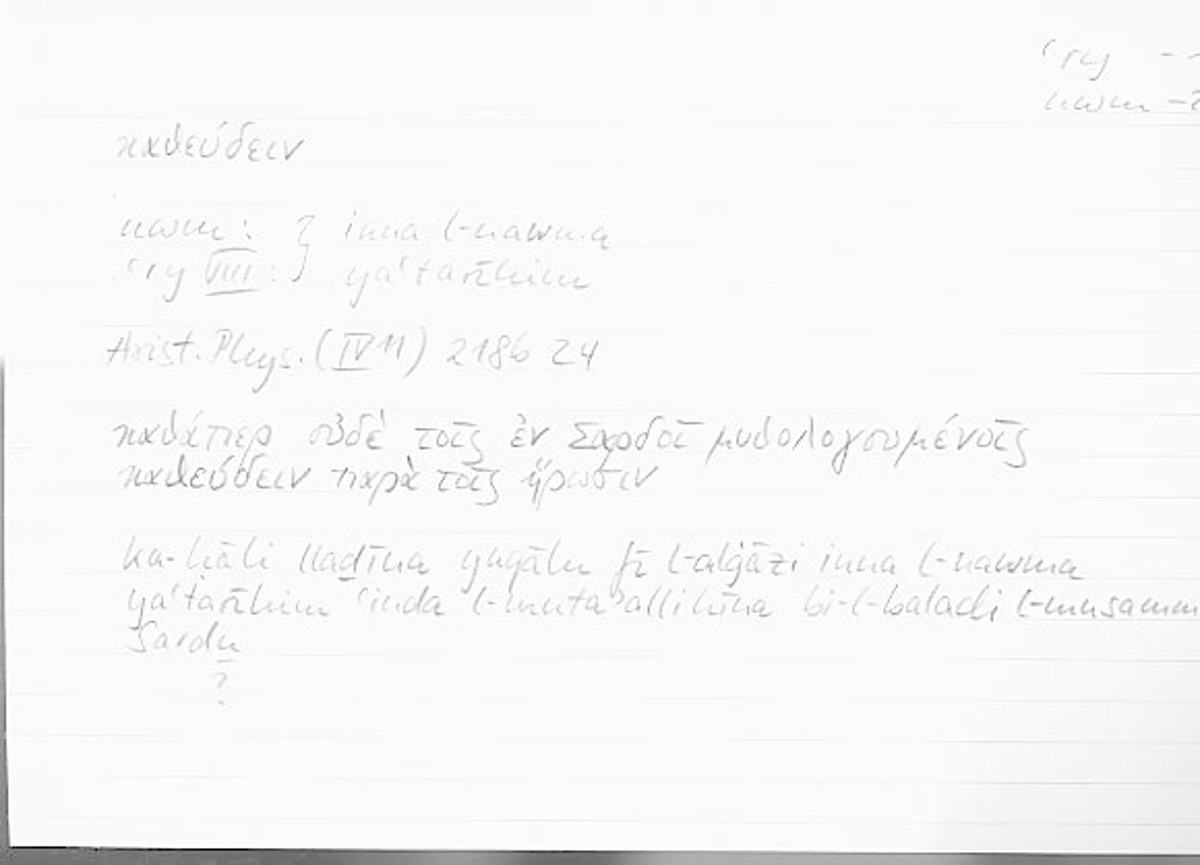 ʿry --
nwm -
καθεύδειν
nwm : } inna l-nawma
ʿry VIII : } yaʿtarīhim
Arist. Phys. (IV 11) 218b 24
καθάπερ οὐδὲ τοῖς ἐν Σαρδοῖ μυθολογουμένοις
καθεύδειν παρὰ τοῖς ἥρωσιν
ka-ḥāli lladīna yuqālu fī l-alġāzi inna l-nawma
yaʿtarīhim ʿinda l-mutaʾallihīna bi-l-baladi l-musamm
Sardu
?